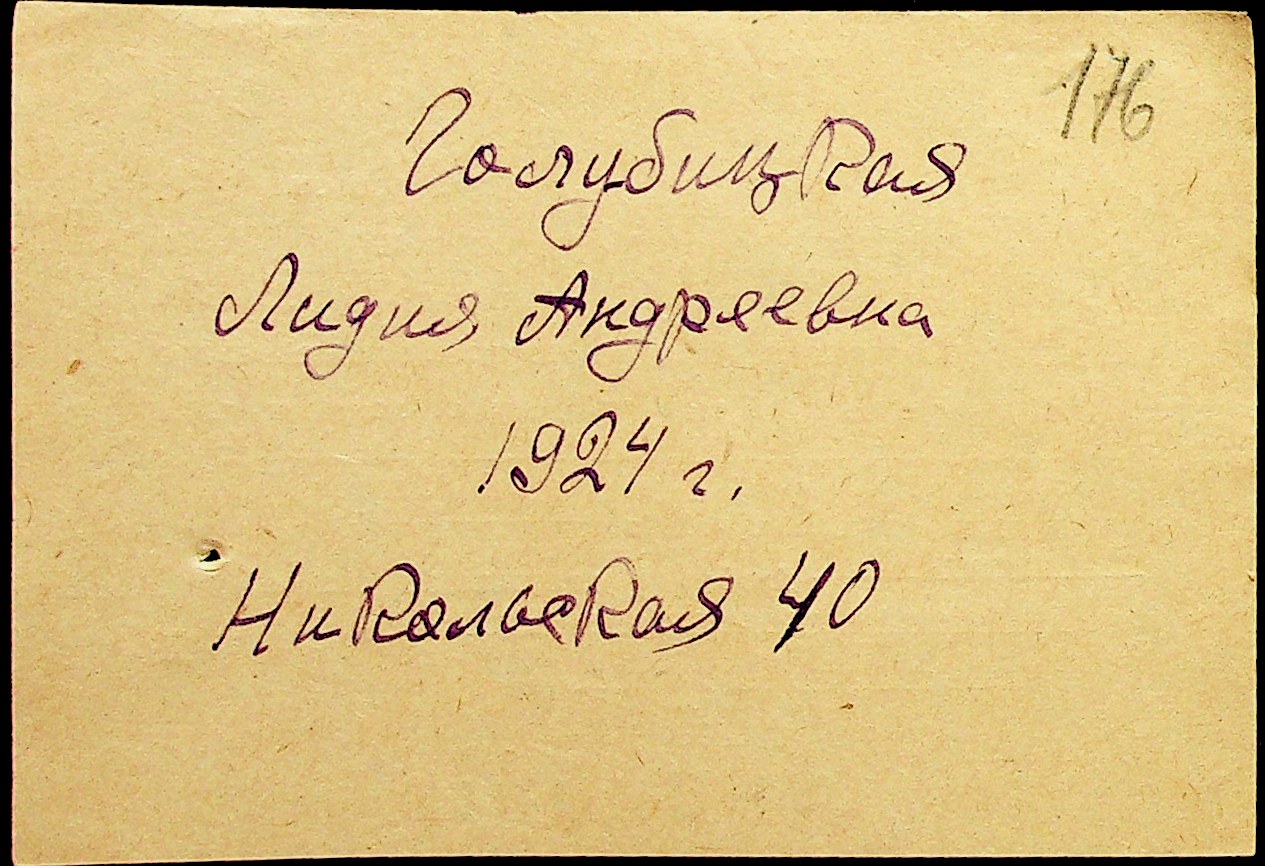 176
Голубицкая
Лидия Андреевна
1924 г.
Никольская 40